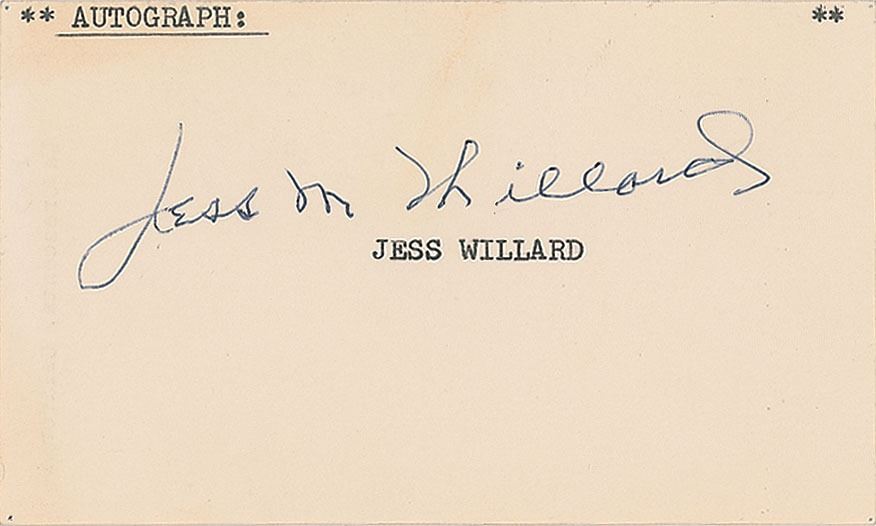 ** AUTOGRAPH: **
Jess M Willard
JESS WILLARD